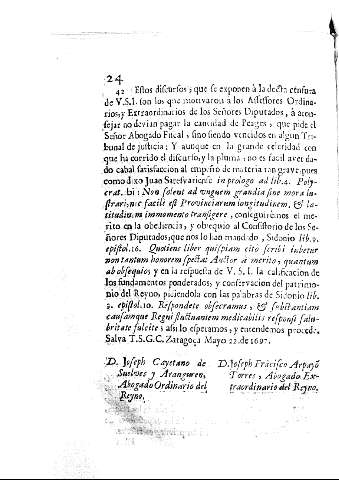 24
42 Estos discursos, que se exponen à la docta censura
de V.S.I. son los que motivaron a los Assessores Ordina-
rios, y Extraordinarios de los Señores Diputados, à acon-
sejar no devian pagar la cantidad de Peages, que pide el
Señor Abogado Fiscal, sino siendo vencidos en algun Tri-
bunal de justicia; Y aunque en la grande celeridad con
que ha corrido el discurso, y la pluma, no es facil aver da-
do cabal satisfaccion al empeño de materia tan grave, pues
como dixo Juan Saresvariense in prologo ad lib. 4. Poly-
crat. ibi: Non solent ad vnguem grandia sine mora lu-
strari; nec facilè est Provinciarum longitudinem, & la-
titudinem immomento transigere, conseguirèmos el me-
rito en la obediencia, y obsequio al Consistorio de los Se-
ñores Diputados, que nos lo han mandado, Sidonio lib. 9.
epistol. 16. Quotiens liber quispiam citò scribi iubetur
non tantum honorem spectat Auctor à merito, quantum
ab obsequio; y en la respuesta de V. S. I. la calificacion de
los fundamentos ponderados, y conservacion del patrimo-
nio del Reyno, pidiendola con las palabras de Sidonio lib.
9. epistol. 10. Respondete obsecramus, & substantiam
causamque Regni sustinantem medicabilis responsi salu-
britate fulcite; assi lo esperamos, y entendemos procede,
Salva T.S.G.C. Zaragoça Mayo 22. de 1697.
D. Joseph Cayetano de
Suelves y Aranguren,
Abogado Ordinario del
Reyno.
D. Joseph Frãcisco Arpayõ
Torres, Abogado Ex-
traordinario del Reyno.